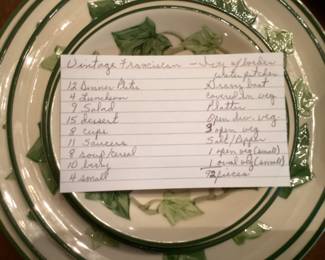 Vintage Franciscan - Ivy w/border
water pitcher
12 Dinner Plates
Gravy boat
4 Luncheon
Cov'd veg
9 Salad
Platter
15 dessert
Open div. veg.
8 cups
3 open veg
11 Saucers
Salt/Pepper
8 soup/cereal
1 open veg (small)
10
1 oval veg (small)
4 small
92 pieces